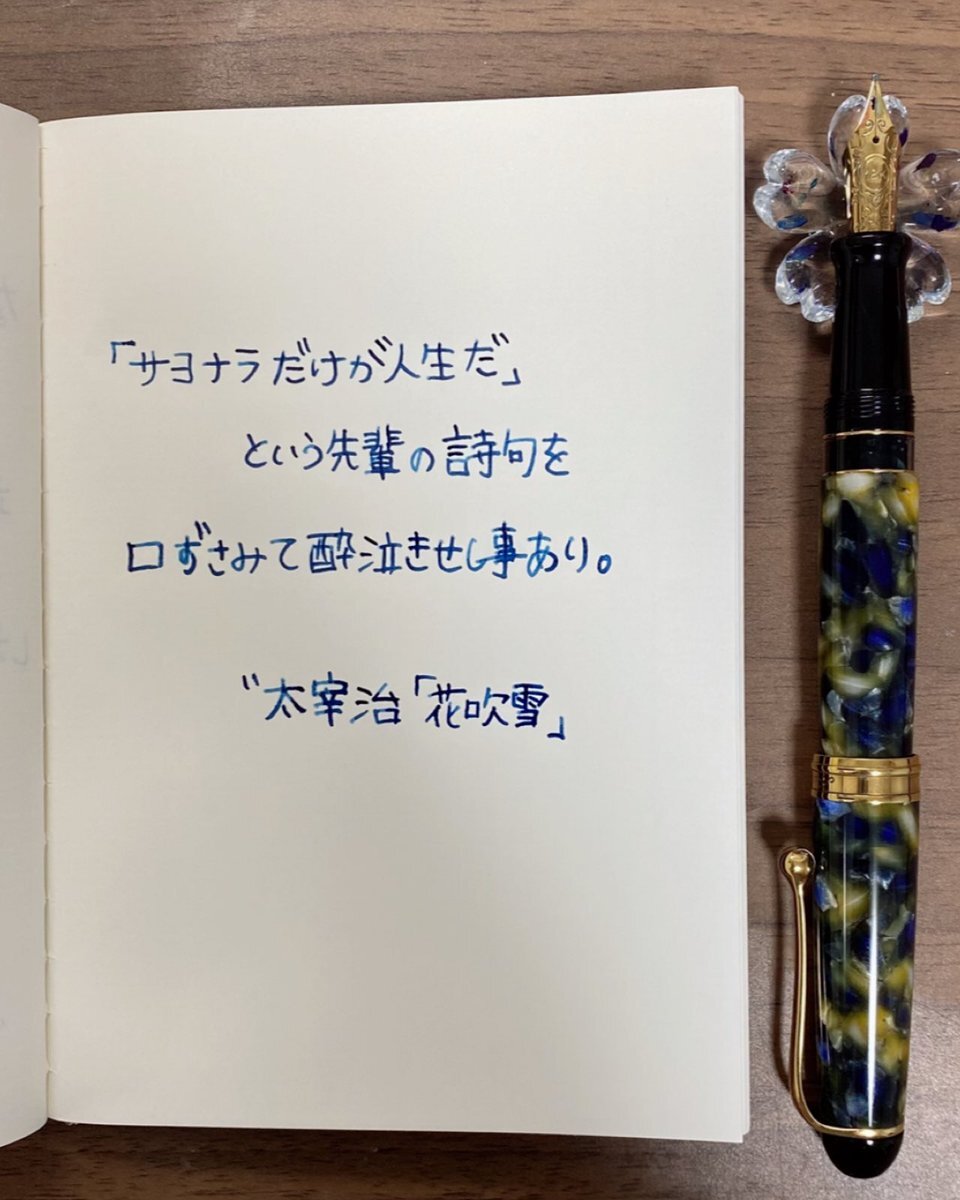 「サヨナラだけが人生だ」
という先輩の詩句を
口ずさみて酔泣きせし事あり。
〃太宰治「花吹雪」